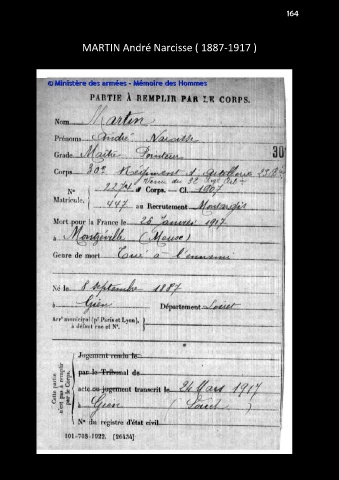 164
MARTIN André Narcisse ( 1887-1917 )
© Ministère des armées - Mémoire des Hommes
PARTIE À REMPLIR PAR LE CORPS.
Nom Martin
Prénoms André Narcisse
Grade Maître Pointeur
30
Corps 30e Régiment d'Artillerie
N° Matricule. 2274 au Corps. — Cl. 1907
447 au Recrutement Montargis
Mort pour la France le 26 Janvier 1917
à Montzéville (Meuse)
Genre de mort Tué à l'ennemi
Né le 8 Septembre 1887
à Gien Département Loiret
Arrᵗ municipal (pʳ Paris et Lyon), à défaut rue et N°.
Cette partie n'est pas à remplir par le Corps.
Jugement rendu le
par le Tribunal de
acte ou jugement transcrit le 24 Mars 1917
à Gien (Loiret)
N° du registre d'état civil
101-708-1922. [26434]